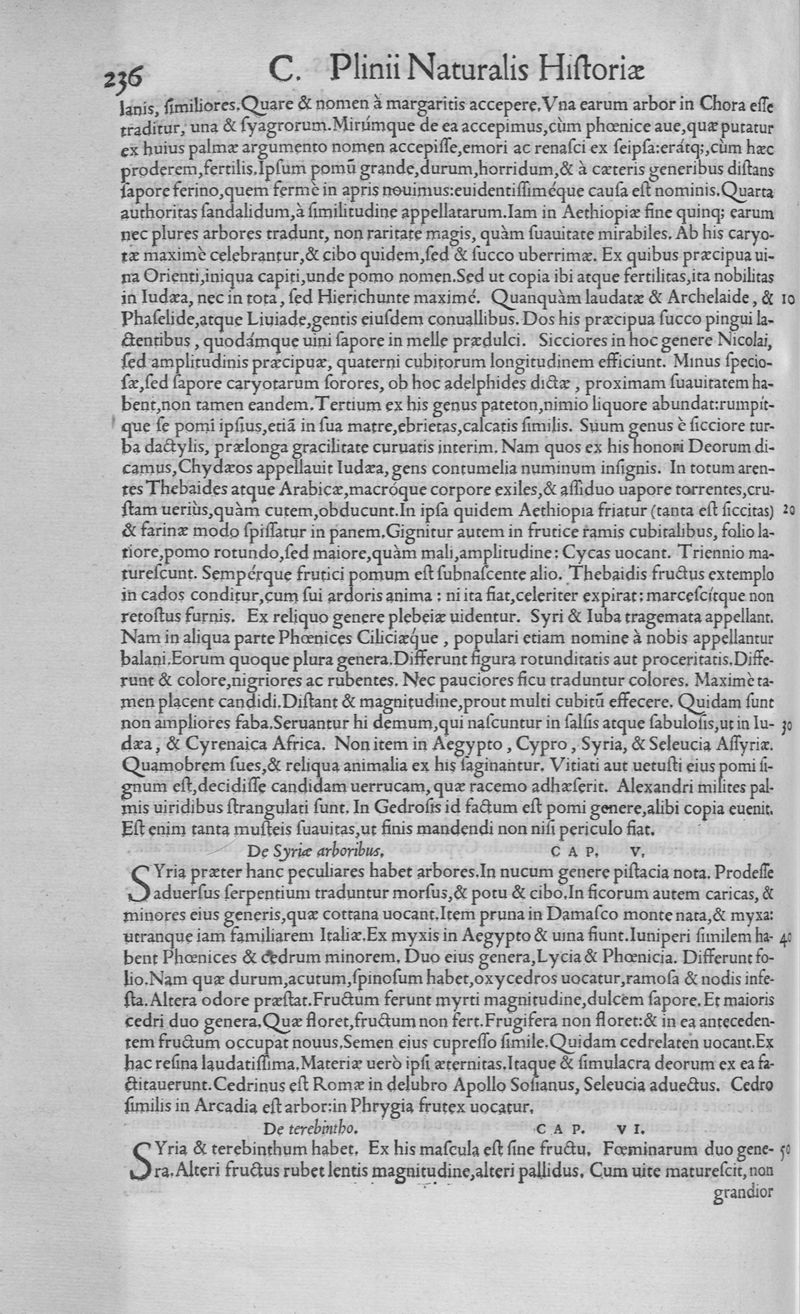 236 C. Plinii Naturalis Hiſtoriæ
lanis, ſimiliores.Quare & nomen à margaritis accepere.Vna earum arbor in Chora eſſe
traditur, una & ſyagrorum.Mirúmque de ea accepimus,cùm phœnice aue,quæ putatur
ex huius palmæ argumento nomen accepiſſe,emori ac renaſci ex ſeipſa:erátq;,cùm hæc
proderem,fertilis.Ipſum pomū grande,durum,horridum,& à cæteris generibus diſtans
ſapore ferino,quem fermè in apris nouimus:euidentiſſiméque cauſa eſt nominis.Quarta
authoritas ſandalidum,à ſimilitudine appellatarum.Iam in Aethiopiæ fine quinq; earum
nec plures arbores tradunt, non raritate magis, quàm ſuauitate mirabiles. Ab his caryo-
tæ maximè celebrantur,& cibo quidem,ſed & ſucco uberrimæ. Ex quibus præcipua ui-
na Orienti,iniqua capiti,unde pomo nomen.Sed ut copia ibi atque fertilitas,ita nobilitas
in Iudæa, nec in tota, ſed Hierichunte maximé. Quanquàm laudatæ & Archelaide, & 10
Phaſelide,atque Liuiade,gentis eiuſdem conuallibus. Dos his præcipua ſucco pingui la-
ctentibus, quodámque uini ſapore in melle prædulci. Sicciores in hoc genere Nicolai,
ſed amplitudinis præcipuæ, quaterni cubitorum longitudinem efficiunt. Minus ſpecio-
ſæ,ſed ſapore caryotarum ſorores, ob hoc adelphides dictæ, proximam ſuauitatem ha-
bent,non tamen eandem.Tertium ex his genus pateton,nimio liquore abundat:rumpít-
que ſe pomi ipſius,etiā in ſua matre,ebrietas,calcatis ſimilis. Suum genus è ſicciore tur-
ba dactylis, prælonga gracilitate curuatis interim. Nam quos ex his honori Deorum di-
camus,Chydæos appellauit Iudæa,gens contumelia numinum inſignis. In totum aren-
tes Thebaides atque Arabicæ,macróque corpore exiles,& aſſiduo uapore torrentes,cru-
ſtam ueriùs,quàm cutem,obducunt.In ipſa quidem Aethiopia friatur (tanta eſt ſiccitas) 20
& farinæ modo ſpiſſatur in panem.Gignitur autem in frutice ramis cubitalibus, folio la-
tiore,pomo rotundo,ſed maiore,quàm mali,amplitudine: Cycas uocant. Triennio ma-
tureſcunt. Sempérque frutici pomum eſt ſubnaſcente alio. Thebaidis fructus extemplo
in cados conditur,cum ſui ardoris anima : ni ita fiat,celeriter expirat: marceſcítque non
retoſtus furnis. Ex reliquo genere plebeiæ uidentur. Syri & Iuba tragemata appellant.
Nam in aliqua parte Phœnices Ciliciæque , populari etiam nomine à nobis appellantur
balani.Eorum quoque plura genera.Differunt figura rotunditatis aut proceritatis.Diffe-
runt & colore,nigriores ac rubentes. Nec pauciores ficu traduntur colores. Maximè ta-
men placent candidi.Diſtant & magnitudine,prout multi cubitū effecere. Quidam ſunt
non ampliores faba.Seruantur hi demum,qui naſcuntur in ſalſis atque ſabuloſis,ut in Iu- 30
dæa, & Cyrenaica Africa. Non item in Aegypto, Cypro, Syria, & Seleucia Aſſyriæ.
Quamobrem ſues,& reliqua animalia ex his ſaginantur. Vitiati aut uetuſti eius pomi ſi-
gnum eſt,decidiſſe candidam uerrucam, quæ racemo adhæſerit. Alexandri milites pal-
mis uiridibus ſtrangulati ſunt. In Gedroſis id factum eſt pomi genere,alibi copia euenit.
Eſt enim tanta muſteis ſuauitas,ut finis mandendi non niſi periculo fiat.
De Syriæ arboribus. CAP. V.
SYria præter hanc peculiares habet arbores.In nucum genere piſtacia nota. Prodeſſe
aduerſus ſerpentium traduntur morſus,& potu & cibo.In ficorum autem caricas, &
minores eius generis,quæ cottana uocant.Item pruna in Damaſco monte nata,& myxa:
utranque iam familiarem Italiæ.Ex myxis in Aegypto & uina fiunt.Iuniperi ſimilem ha- 40
bent Phœnices & cedrum minorem. Duo eius genera,Lycia & Phœnicia. Differunt fo-
lio.Nam quæ durum,acutum,ſpinoſum habet,oxycedros uocatur,ramoſa & nodis infe-
ſta.Altera odore præſtat.Fructum ferunt myrti magnitudine,dulcem ſapore.Et maioris
cedri duo genera.Quæ floret,fructum non fert.Frugifera non floret:& in ea anteceden-
tem fructum occupat nouus.Semen eius cupreſſo ſimile.Quidam cedrelaten uocant.Ex
hac reſina laudatiſſima.Materiæ uerò ipſi æternitas.Itaque & ſimulacra deorum ex ea fa-
ctitauerunt.Cedrinus eſt Romæ in delubro Apollo Soſianus, Seleucia aduectus. Cedro
ſimilis in Arcadia eſt arbor:in Phrygia frutex uocatur.
De terebintho. CAP. VI.
SYria & terebinthum habet. Ex his maſcula eſt ſine fructu. Fœminarum duo gene- 50
ra.Alteri fructus rubet lentis magnitudine,alteri pallidus. Cum uite matureſcit,non
grandior